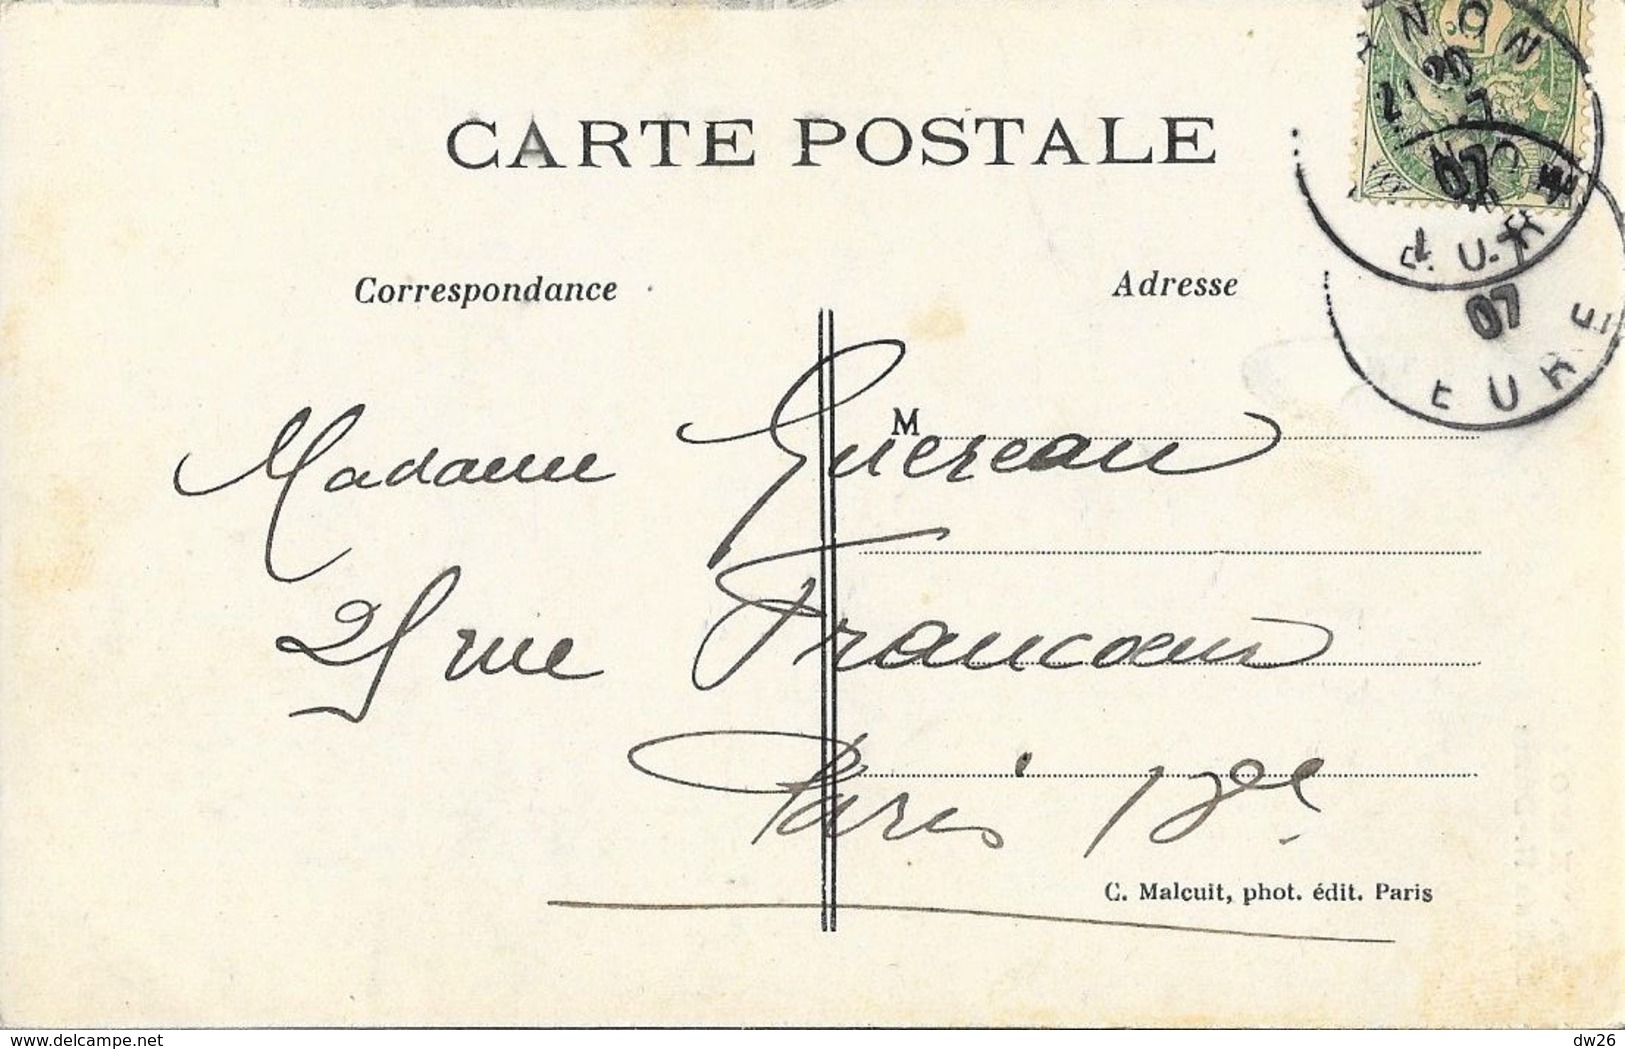 NON
20
7
07
EURE
07
EURE
CARTE POSTALE
Correspondance
Adresse
M
Madame Guereau
25 rue Francoeur
Paris 18e
C. Malcuit, phot. édit. Paris
delcampe.net
dw26